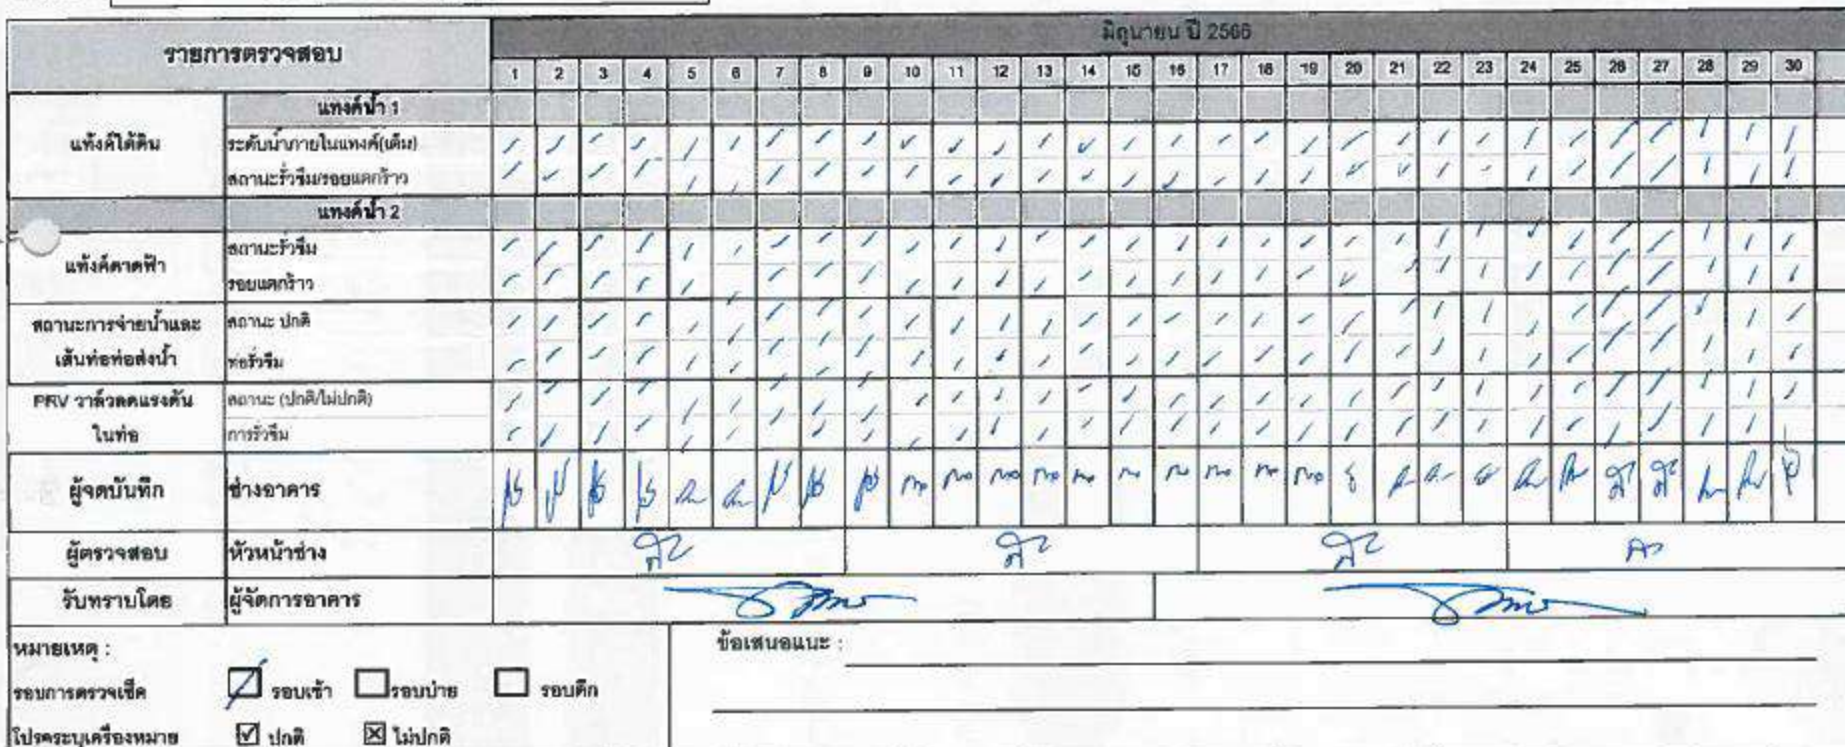 รายการตรวจสอบ
มิถุนายน ปี 2566
1 2 3 4 5 6 7 8 9 10 11 12 13 14 15 16 17 18 19 20 21 22 23 24 25 26 27 28 29 30
แทงค์น้ำ 1
แท้งค์ใต้ดิน
ระดับน้ำภายในแทงค์(เต็ม)
สถานะรั่วซึม/รอยแตกร้าว
แทงค์น้ำ 2
แท้งค์ดาดฟ้า
สถานะรั่วซึม
รอยแตกร้าว
สถานะการจ่ายน้ำและ
เส้นท่อท่อส่งน้ำ
สถานะ ปกติ
ท่อรั่วซึม
PRV วาล์วลดแรงดัน
ในท่อ
สถานะ (ปกติ/ไม่ปกติ)
การรั่วซึม
ผู้จดบันทึก ช่างอาคาร
ผู้ตรวจสอบ หัวหน้าช่าง
รับทราบโดย ผู้จัดการอาคาร
หมายเหตุ :
ข้อเสนอแนะ :
รอบการตรวจเช็ค รอบเช้า รอบบ่าย รอบดึก
โปรดระบุเครื่องหมาย ☑ ปกติ ☒ ไม่ปกติ